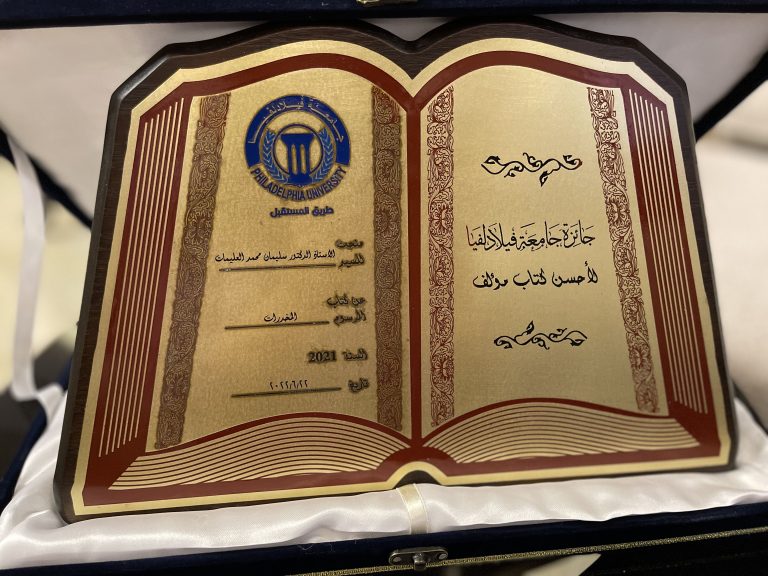 جائزة جامعة فيلادلفيا
لأحسن كتاب مؤلف
جامعة فيلادلفيا
PHILADELPHIA UNIVERSITY
طريق المستقبل
منحت
للسيد الأستاذ الدكتور سليمان محمد العليمات
عن كتاب
الموسوم المخدرات
للسنة 2021
تاريخ ٢٠٢٢/٦/٢٢